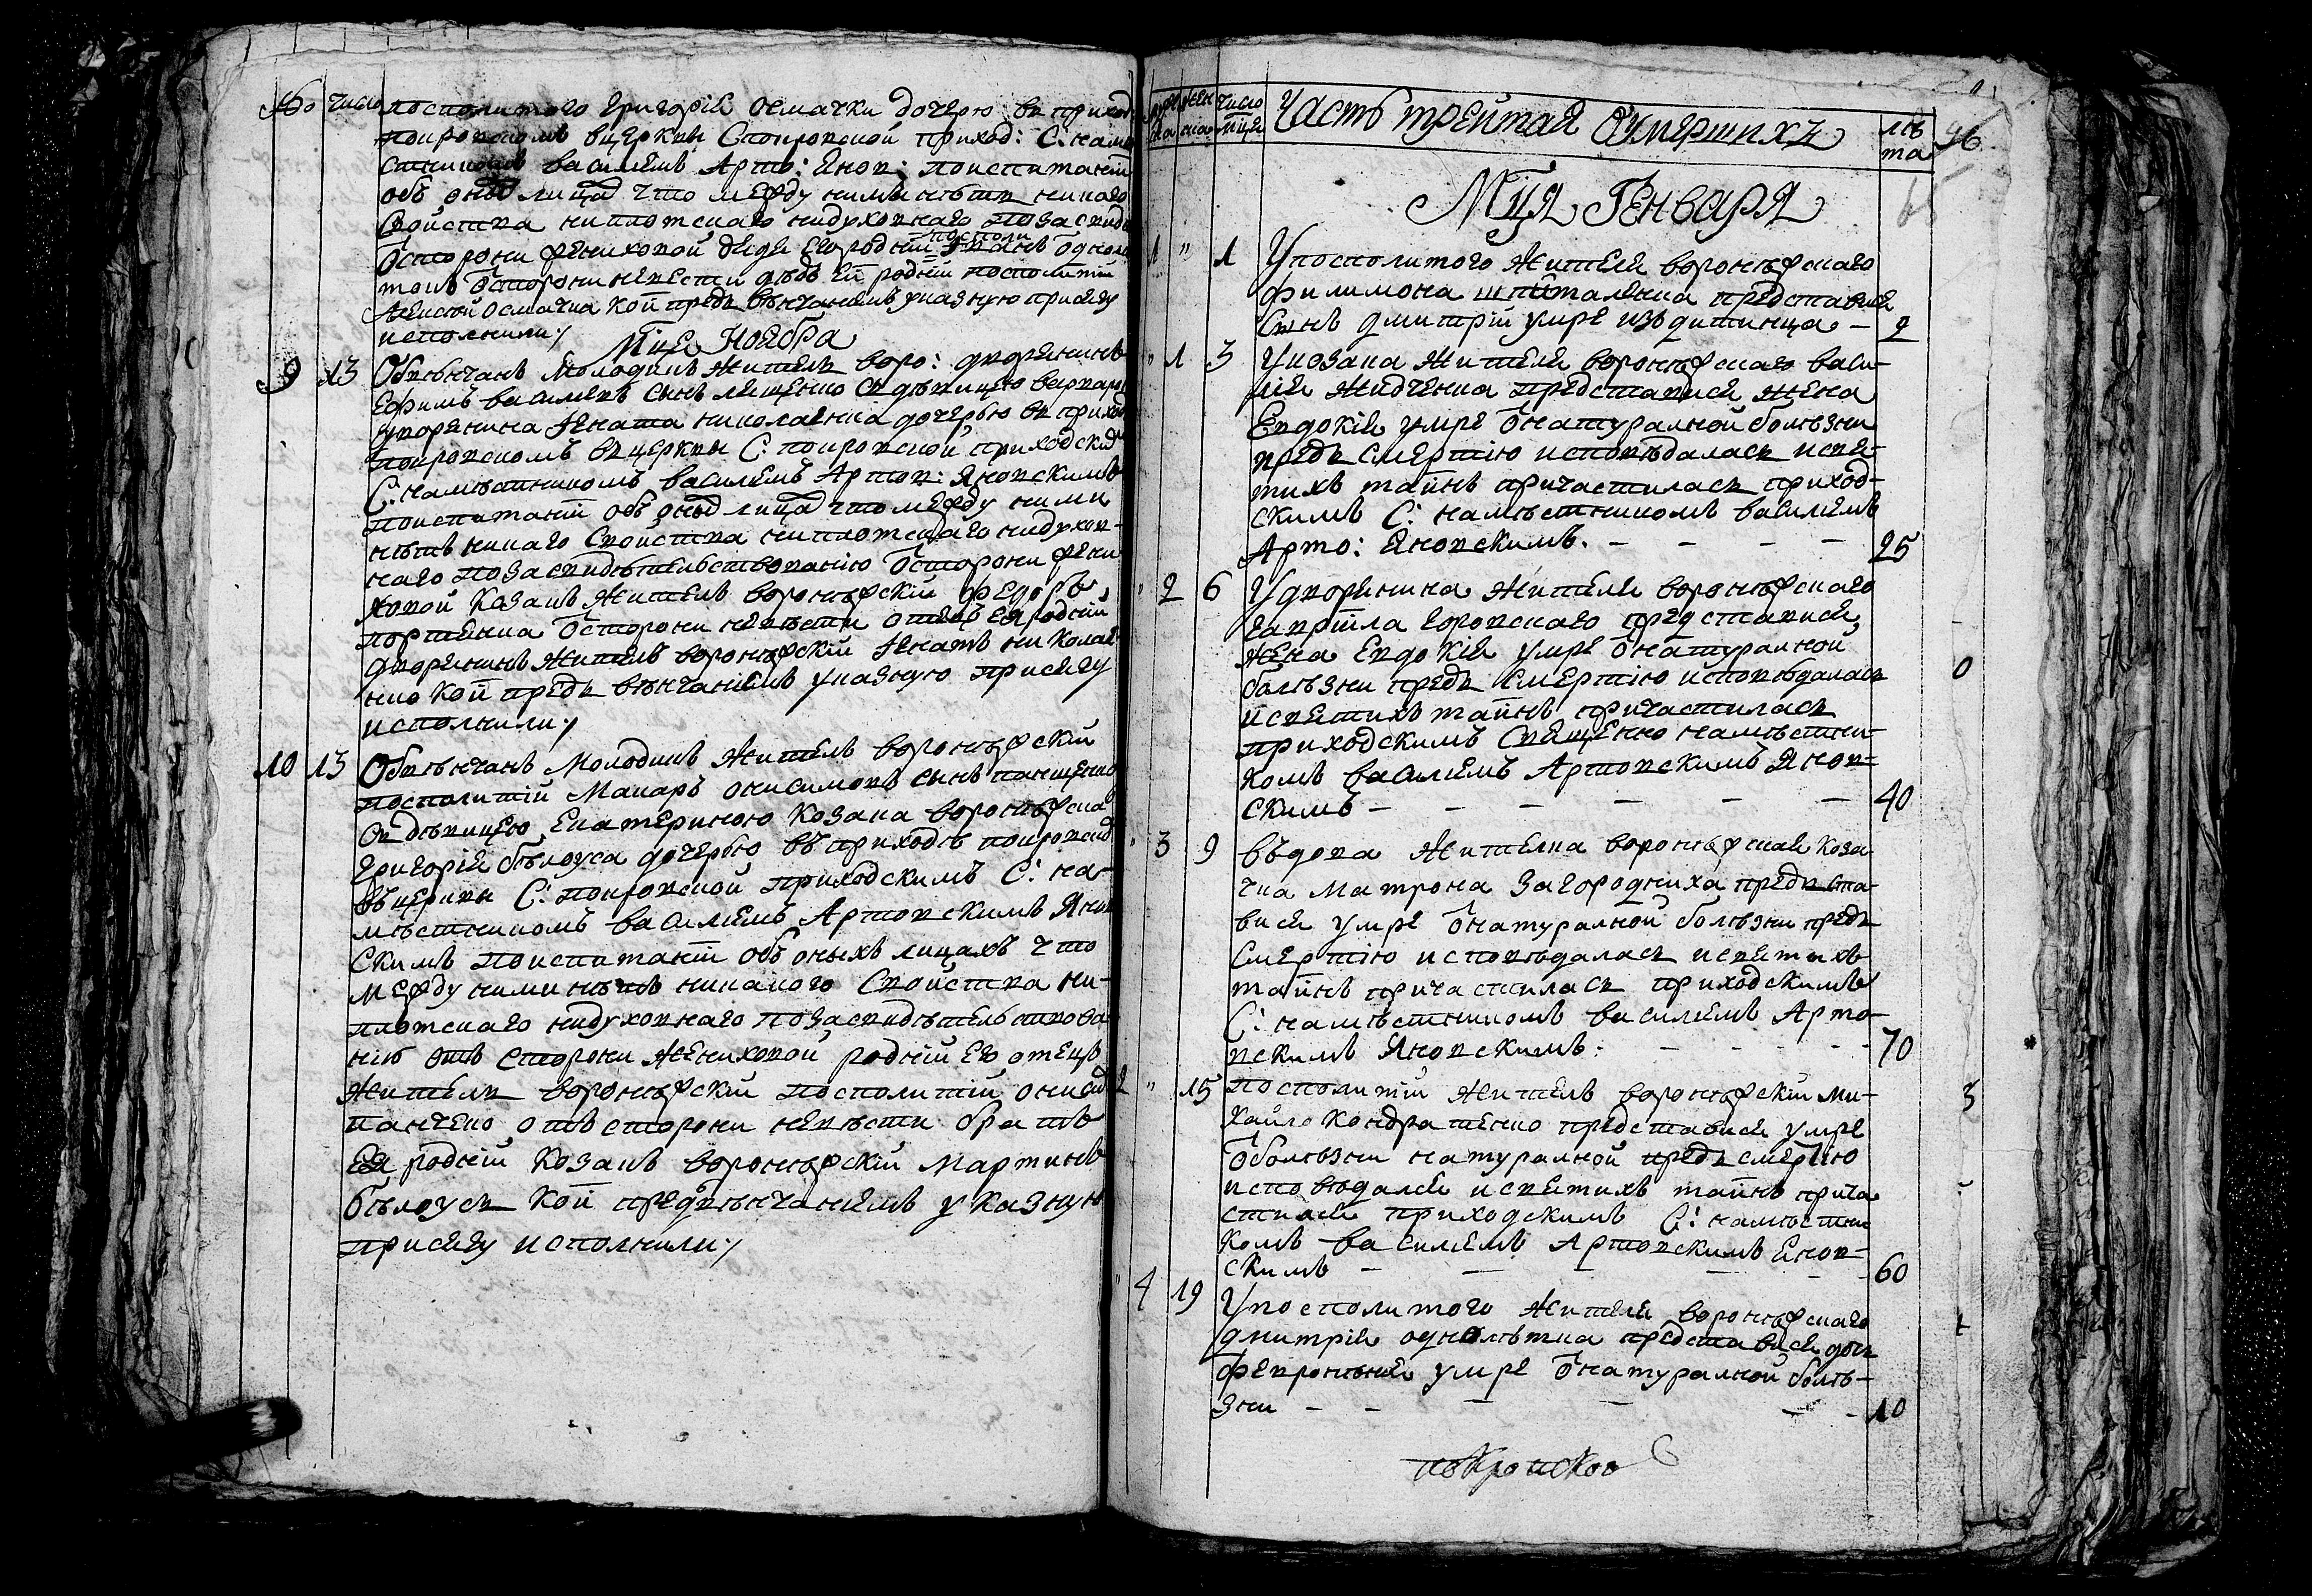 число посполитого Григорія Осмачки дочерю въ приход
покровскомъ вцеркви С покровской приход: С: наме
стникомъ василіемъ Арто: Янов: поиспитаніи
объ оныхъ лицах что между ними нѣтъ никаго
Свойства ниплотскаго нидуховнаго позасвиде
Ѿстороны жениховой дядя Его родній посполи
Ѿстороны невести дѣдъ ей родній посполитій
Осмачка кой предъ вѣнчаніемъ указную присягу
исполнили
Мца Ноебра
9 13 Обвѣнчанъ Молодикъ житель воро: дворенинъ
Ефимъ василіевъ сынъ лященко съ дѣвицею варвар
дворенина Игната николаенка дочерью въ приход
покровскомъ вцеркви С: покровской приходским
С: намѣстникомъ василіемъ Артов: Яновскимъ
поиспитаніи объ оных лицах что между ними
нѣтъ никаго Свойства ниплотскаго нидухов-
наго позасвидѣтельствованію Ѿстороны жени
ховой Козакъ житель воронѣжскій Федоръ
портянка Ѿстороны невѣсти отецъ Ея родній
дворенинъ житель воронѣжскій Игнатъ никола
нко кой предъ вѣнчаніемъ указную присягу
исполнили
10 13 Обвѣнчанъ Молодикъ житель воронѣжскій
посполитій Макаръ онисимовъ сынъ панченко
съ дѣвицею Екатериною Козака воронѣжска
Григорія бѣлоуса дочерью въ приходѣ покровско
въ церкви С: покровской приходскимъ С: на-
мѣстникомъ василіемъ Артовскимъ Янов
скимъ поиспитаніи объ оныхъ лицахъ что
между ними нѣтъ никакого Свойства ни-
плотскаго нидуховнаго позасвидѣтельствова
нію отъ стороны жениховой родній Его отецъ
житель воронѣжскій посполитій онисим
панченко отъ стороны невѣсти братъ
Ея родній Козакъ воронѣжскій мартинъ
бѣлоусъ кой предъвѣнчаніемъ указную
присягу исполнили
муже ска жен ска число мця Часть трейтая Оумершихъ лѣ та 96
65
Мця Генваря
1 " 1 Упосполитого жителя воронѣжскаго
филимона шпиталенка представися
Сынъ дмитрій умре изъ дитинца – 2
" 1 3 Укозака жителя воронѣжскаго васи-
лія жидченка представися жена
Евдокія умре Ѿнатуралной болѣзни
предъ смертію исповѣдалась исвя-
тихъ таинъ причастилась приход-
скимъ С: намѣстникомъ василіемъ
Арто: Яновскимъ. – – – – 25
" 2 6 Удворенина жителя воронѣжскаго
гавріила горовскаго представися
жена Евдокія умре Ѿнатуралной
болѣзни предъ смертію исповѣдалась
исвятихъ таинъ причастилась
приходскимъ Священно намѣстни-
комъ василіемъ Артовскимъ Янов-
скимъ – – – – – – 40
" 3 9 въдова жителка воронѣжская коза-
чка матрона Загородниха предъста-
вися умре Ѿнатуралной болѣзни предъ
смертію исповѣдалась исвятихъ
таинъ причастилась приходскимъ
С: намѣстникомъ василіемъ Арто-
вскимъ Яновскимъ: – – – 70
2 " 15 посполитій житель воронѣжскій ми-
хайло Кондратенко представися умре
Ѿболѣзни натуралной предъ смертію
исповѣдался исвятихъ таинъ прича
стился приходскимъ С: намѣстни
комъ василіемъ Артовскимъ Янов-
скимъ – – – – – 60
" 4 19 Упосполитого жителя воронѣжскаго
дмитрія однолѣтка представися дочь
февронія умре Ѿнатуралной болѣ-
зни – – – – – 10
покровской